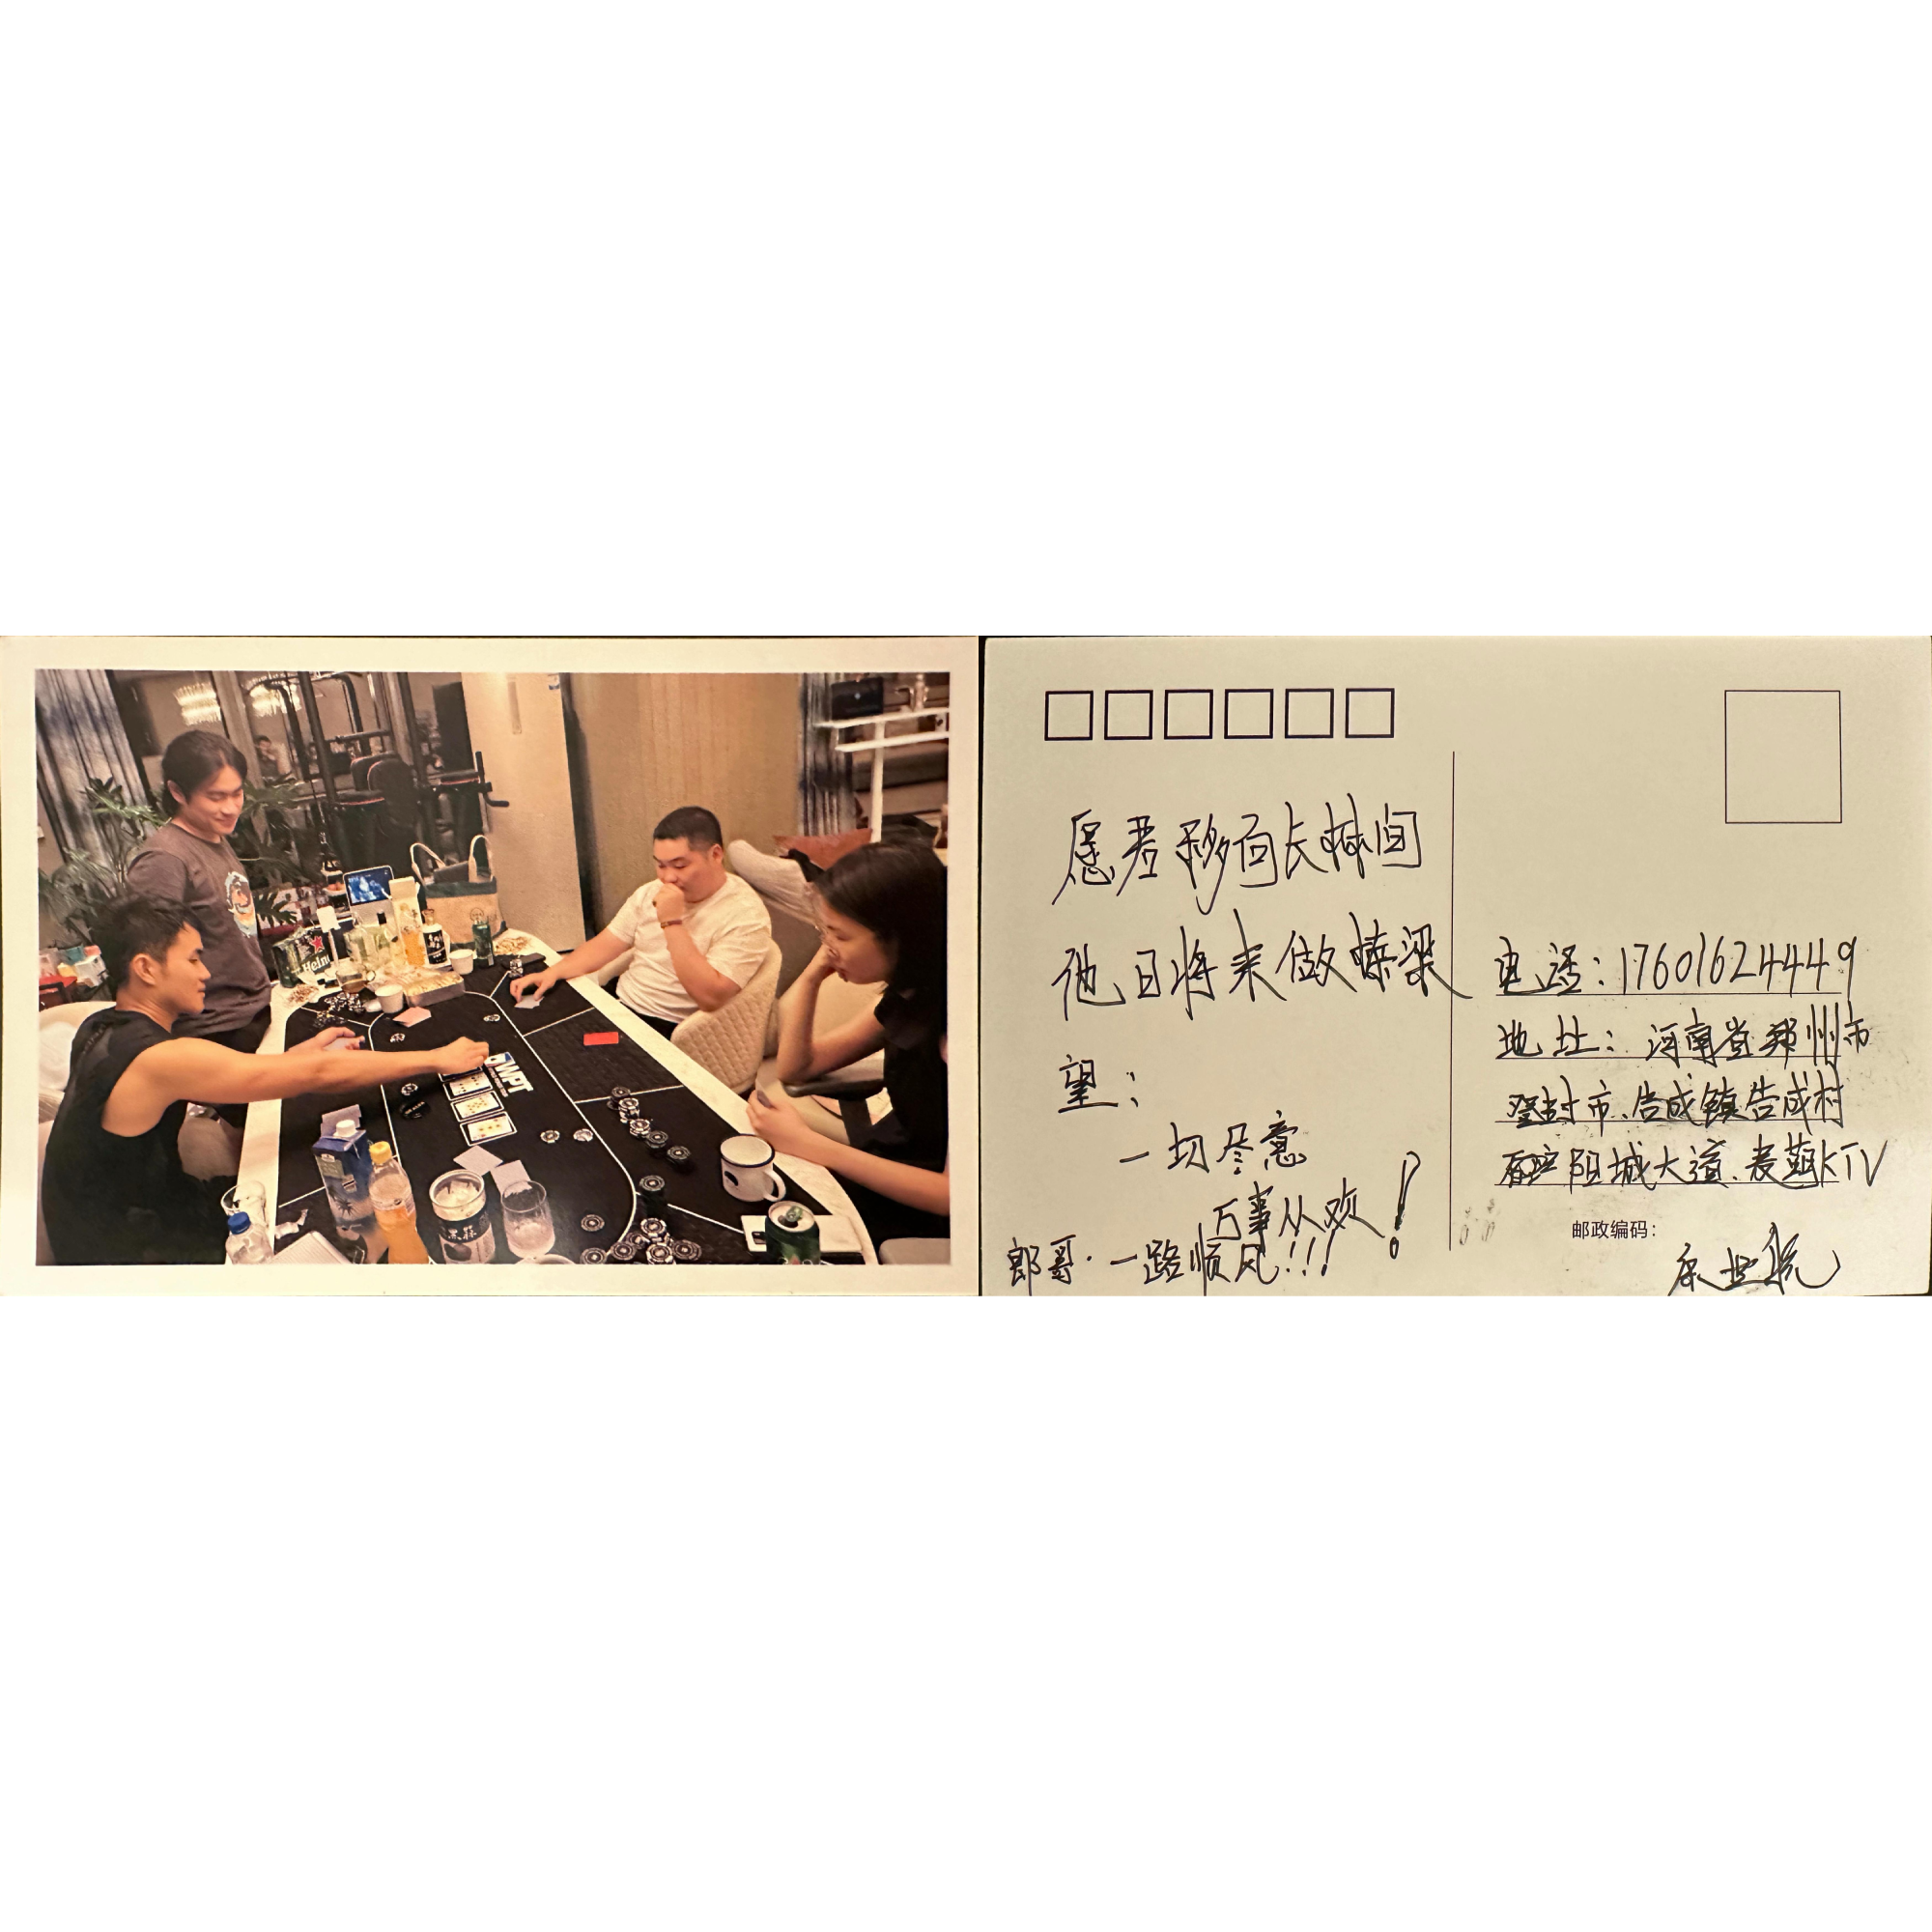 Heine
WPT
愿君移向长林间
他日将来做栋梁
望:
一切尽意
万事从欢!
郎哥·一路顺风!!!
电话:17601624449
地址:河南省郑州市
登封市.告成镇告成村
阳城大道.麦 KTV
邮政编码: